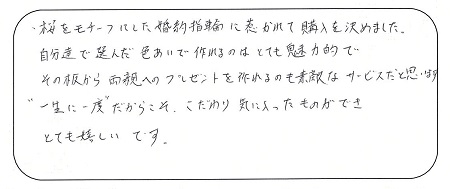 桜をモチーフにした婚約指輪に惹かれて購入を決めました。
自分達で選んだ色あいで作れるのはとても魅力的で
その板から両親へのプレゼントを作れるのも素敵なサービスだと思います
"一生に一度"だからこそ、こだわり気に入ったものができ
とても嬉しいです。